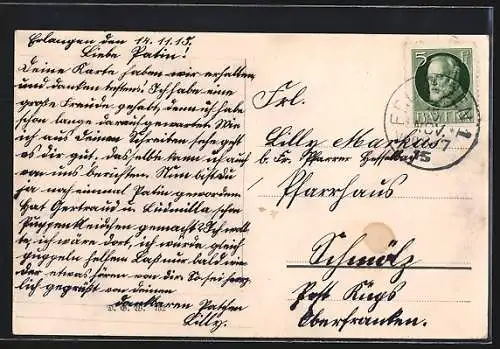 Erlangen den 14.11.15.
Liebe Patin!
Deine Karte haben wir erhalten
und danken bestens. Ich habe eine
große Freude gehabt, denn ich habe
schon lange darauf gewartet. Wie
ich aus Deinem Schreiben lese geht
es dir gut, dasselbe kann ich auch
von uns berichten. Nun bist du
ja noch einmal Patin geworden.
Hat Gertraud u. Ludmilla schon
Puppenkleidchen gemacht? Ich woll-
te, ich wäre dort, ich würde gleich
helfen. Laß nur bald wie-
der etwas hören von dir. So sei herz-
lich gegrüßt von deinem
dankbaren Patchen
Lilly.
5
BAYERN
NOV.
15
1
Frl.
Lilly Markus
b. Fr. Pfarrer
Pfarrhaus
Schmölz
Post Küps
Oberfranken.